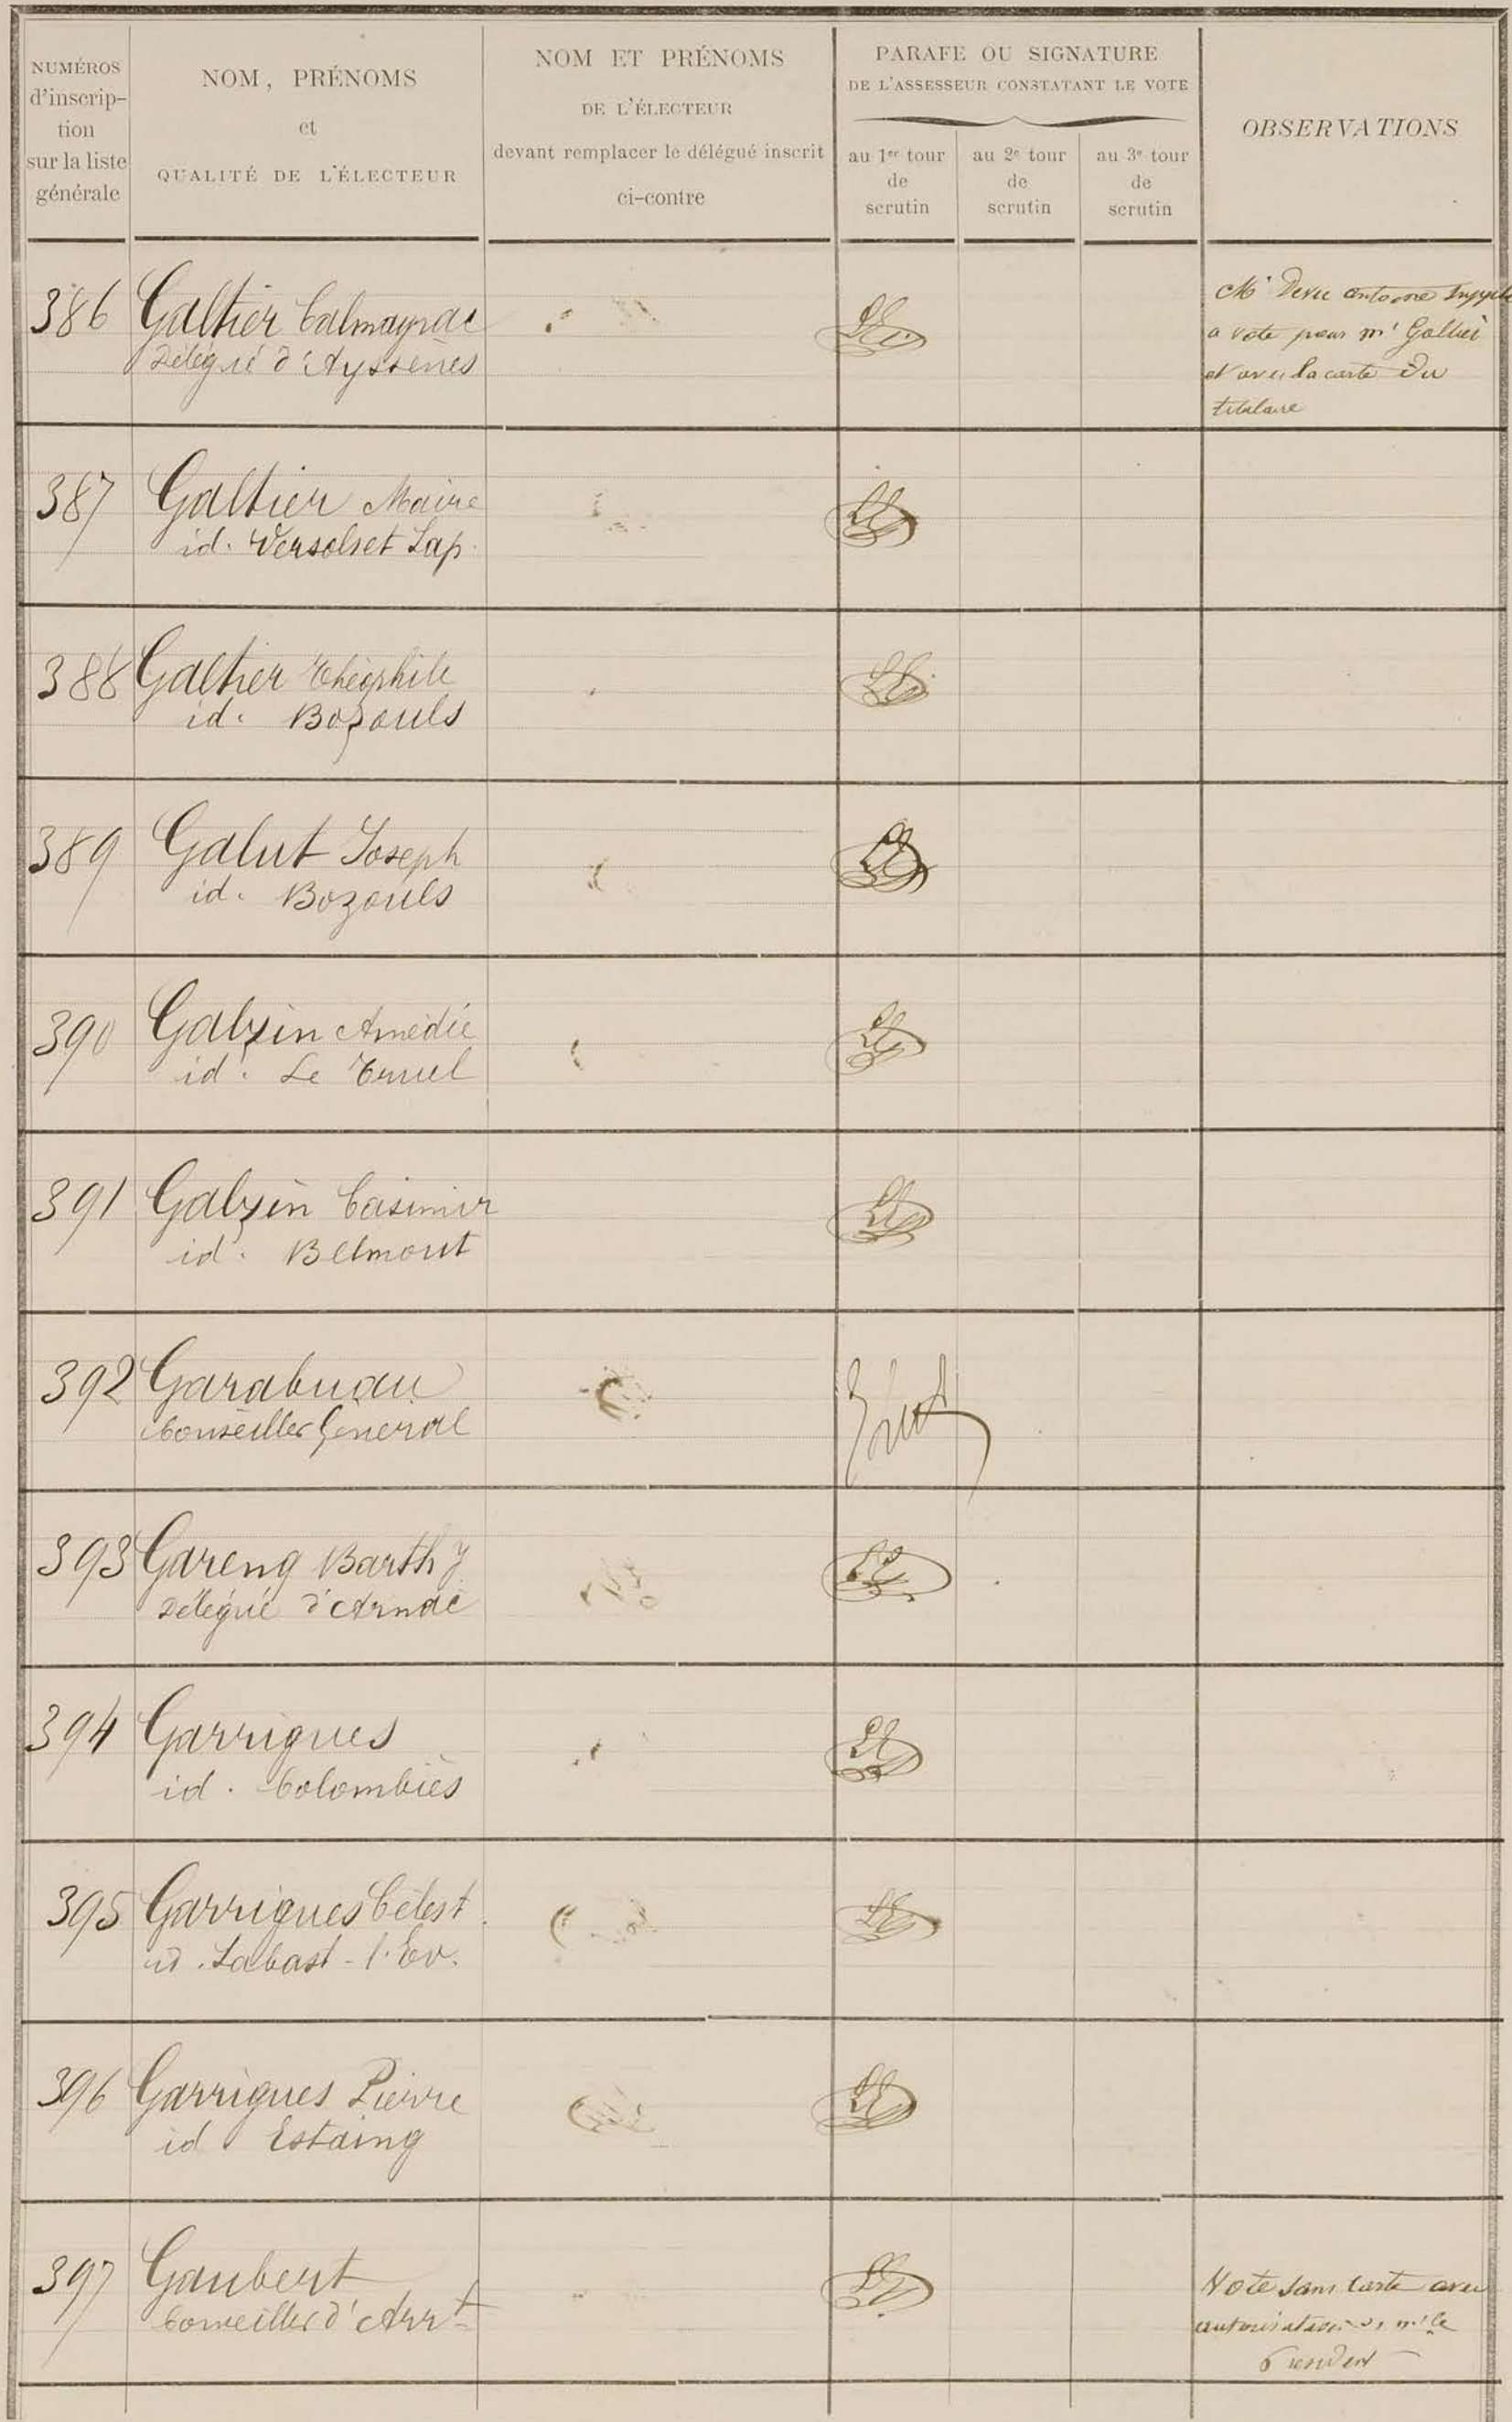 NUMÉROS
d'inscrip-
tion
sur la liste
générale
NOM, PRÉNOMS
et
QUALITÉ DE L'ÉLECTEUR
NOM ET PRÉNOMS
DE L'ÉLECTEUR
devant remplacer le délégué inscrit
ci-contre
PARAFE OU SIGNATURE
DE L'ASSESSEUR CONSTATANT LE VOTE
au 1er tour
de
scrutin
au 2e tour
de
scrutin
au 3e tour
de
scrutin
OBSERVATIONS
386 Galtier Calmaynac
Délégué d'Ayssènes
Mr antoine
a voté pour mr Galtier
et avec la carte du
titulaire
387 Galtier Maire
id. Versolset Lap.
388 Galtier Théophile
id. Bozouls
389 Galut Joseph
id. Bozouls
390 Galzin Amédée
id. Le Truel
391 Galzin Casimir
id. Belmont
392 Garabuau
Conseiller Général
393 Gareng Barthy
Délégué d'Arnac
394 Garrigues
id. Colombiès
395 Garrigues Célest
id. Labast-l'Ev.
396 Garrigues Pierre
id Estaing
397 Gaubert
Conseiller d'Arrt
Vote sans carte avec
autorisation mr le